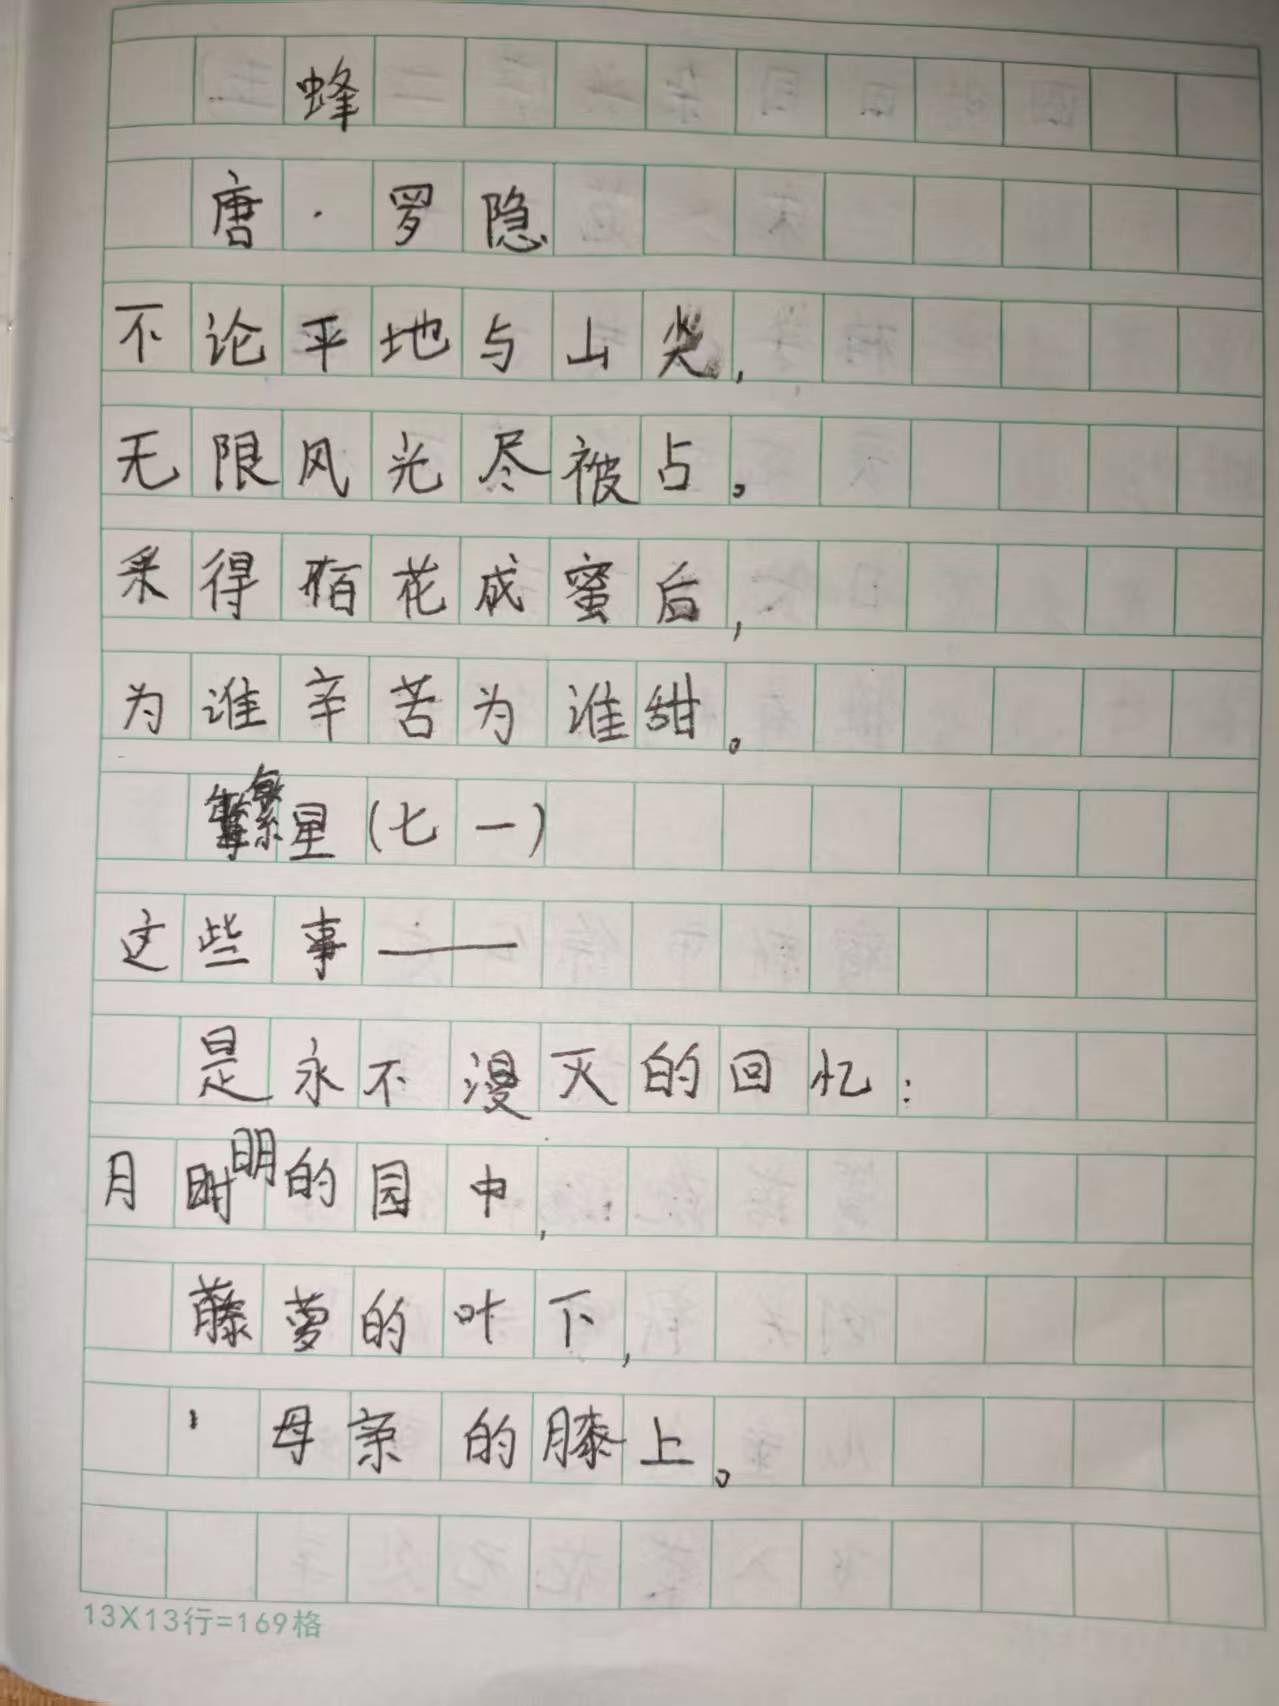 蜂
唐·罗隐
不论平地与山尖,
无限风光尽被占。
采得百花成蜜后,
为谁辛苦为谁甜。
繁星(七一)
这些事——
是永不漫灭的回忆:
月明的园中,
藤萝的叶下,
母亲的膝上。
13X13行=169格